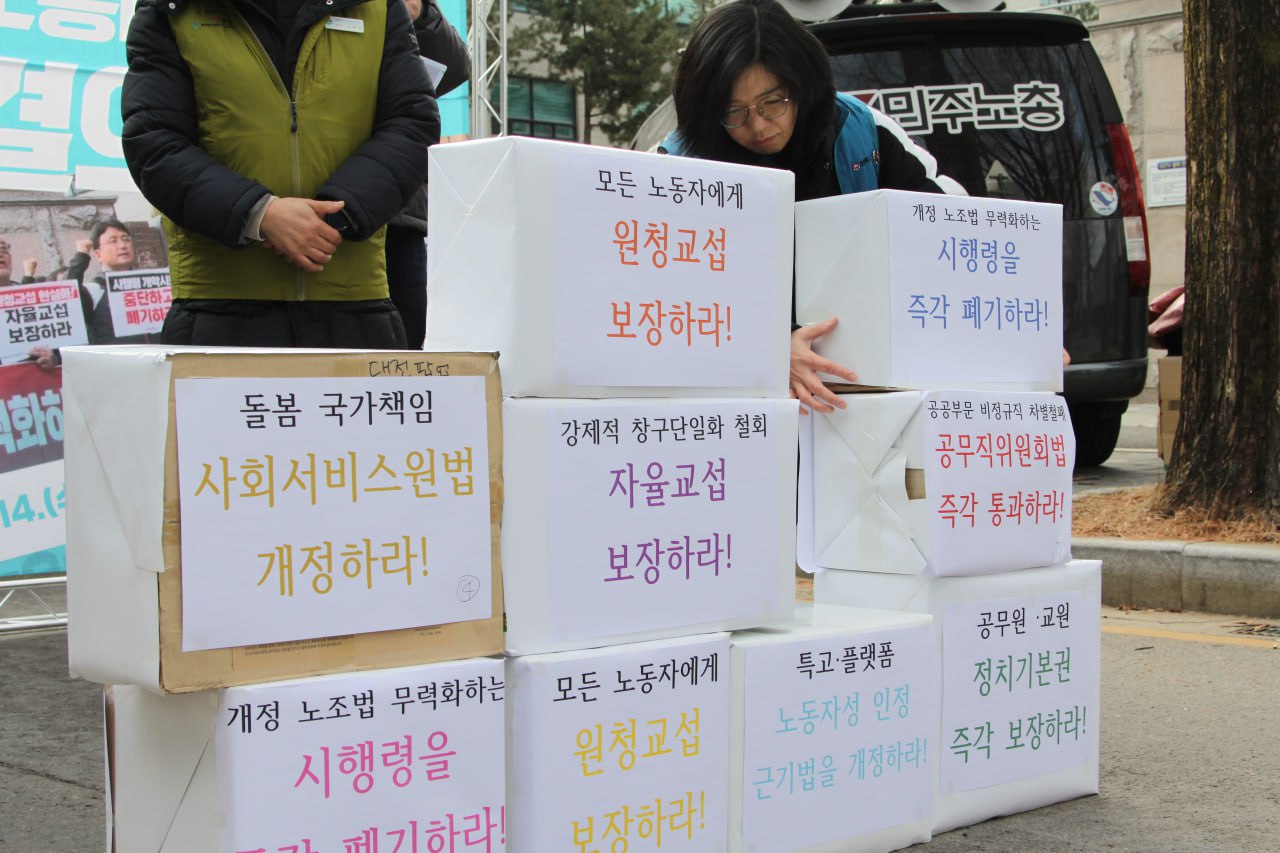 결의
민주노총
교섭 현실화!
자율교섭
보장하라
중단하고
폐기하
모든 노동자에게
원청교섭
보장하라!
개정 노조법 무력화하는
시행령을
즉각 폐기하라!
대전
돌봄 국가책임
사회서비스원법
개정하라!
4
강제적 창구단일화 철회
자율교섭
보장하라!
공공부문 비정규직 차별철폐
공무직위원회법
즉각 통과하라!
개정 노조법 무력화하는
시행령을
즉각 폐기하라!
모든 노동자에게
원청교섭
보장하라!
특고·플랫폼
노동자성 인정
근기법을 개정하라!
공무원·교원
정치기본권
즉각 보장하라!
14.(